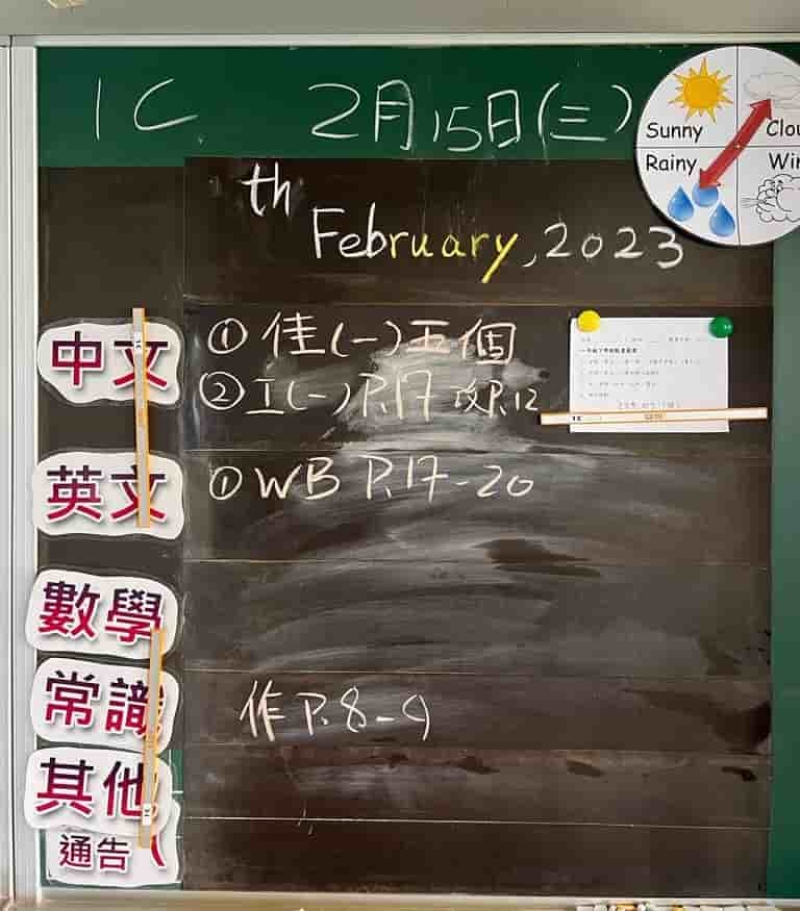 1C 2月15日(三)
th
February, 2023
Sunny
Rainy
中文
① 佳(一)五個
② 工(一)P.17 改P.12
英文
① WB P.17-20
數學
常識
作 P.8-9
其他
通告